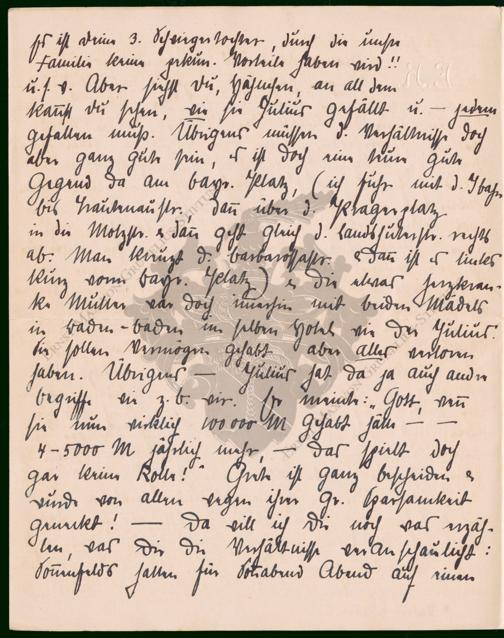 Es ist deine 3. Schwiegertochter, durch die unsre
Familie keine pekun. Vorteile haben wird!!
u.s.w. Aber siehst Du, Hähnchen, an all dem
kannst Du sehen, wie sie Julius gefällt u. – jedem
gefallen muß. Übrigens müssen d. Verhältnisse doch
aber ganz gute sein, es ist doch eine teure gute
Gegend da am bayr. Platz, (ich fuhr mit d. Ubahn
bis Trautenaustr. dann über d. Pragerplatz
in die Motzstr. & dann geht gleich d. Landshuterstr. rechts
ab. Man kreuzt d. Barbarossastr. & dann ist es links
kurz vorm bayr. Platz) & die etwas herzkran-
ke Mutter war doch immerhin mit beiden Mädels
in Baden-Baden im selben Hotel wie der Julius.
Sie sollen Vermögen gehabt aber alles verloren
haben. Übrigens – Julius hat da ja auch andre
Begriffe wie z.b. wir. Er meinte: „Gott, wenn
sie nun wirklich 100 000 M gehabt hätte – –
4–5000 M jährlich mehr, – das spielt doch
gar keine Rolle!" Grete ist ganz bescheiden &
wurde von allen wegen ihrer Gr. Sparsamkeit
geneckt! – Da will ich Dir noch was erzäh-
len, was Dir die Verhältnisse veranschaulicht:
Sonnenfelds hatten für Sonnabend Abend auf einen